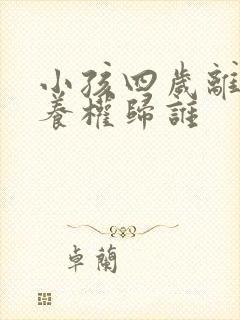 小孩四歲離
養權歸誰
卓蘭